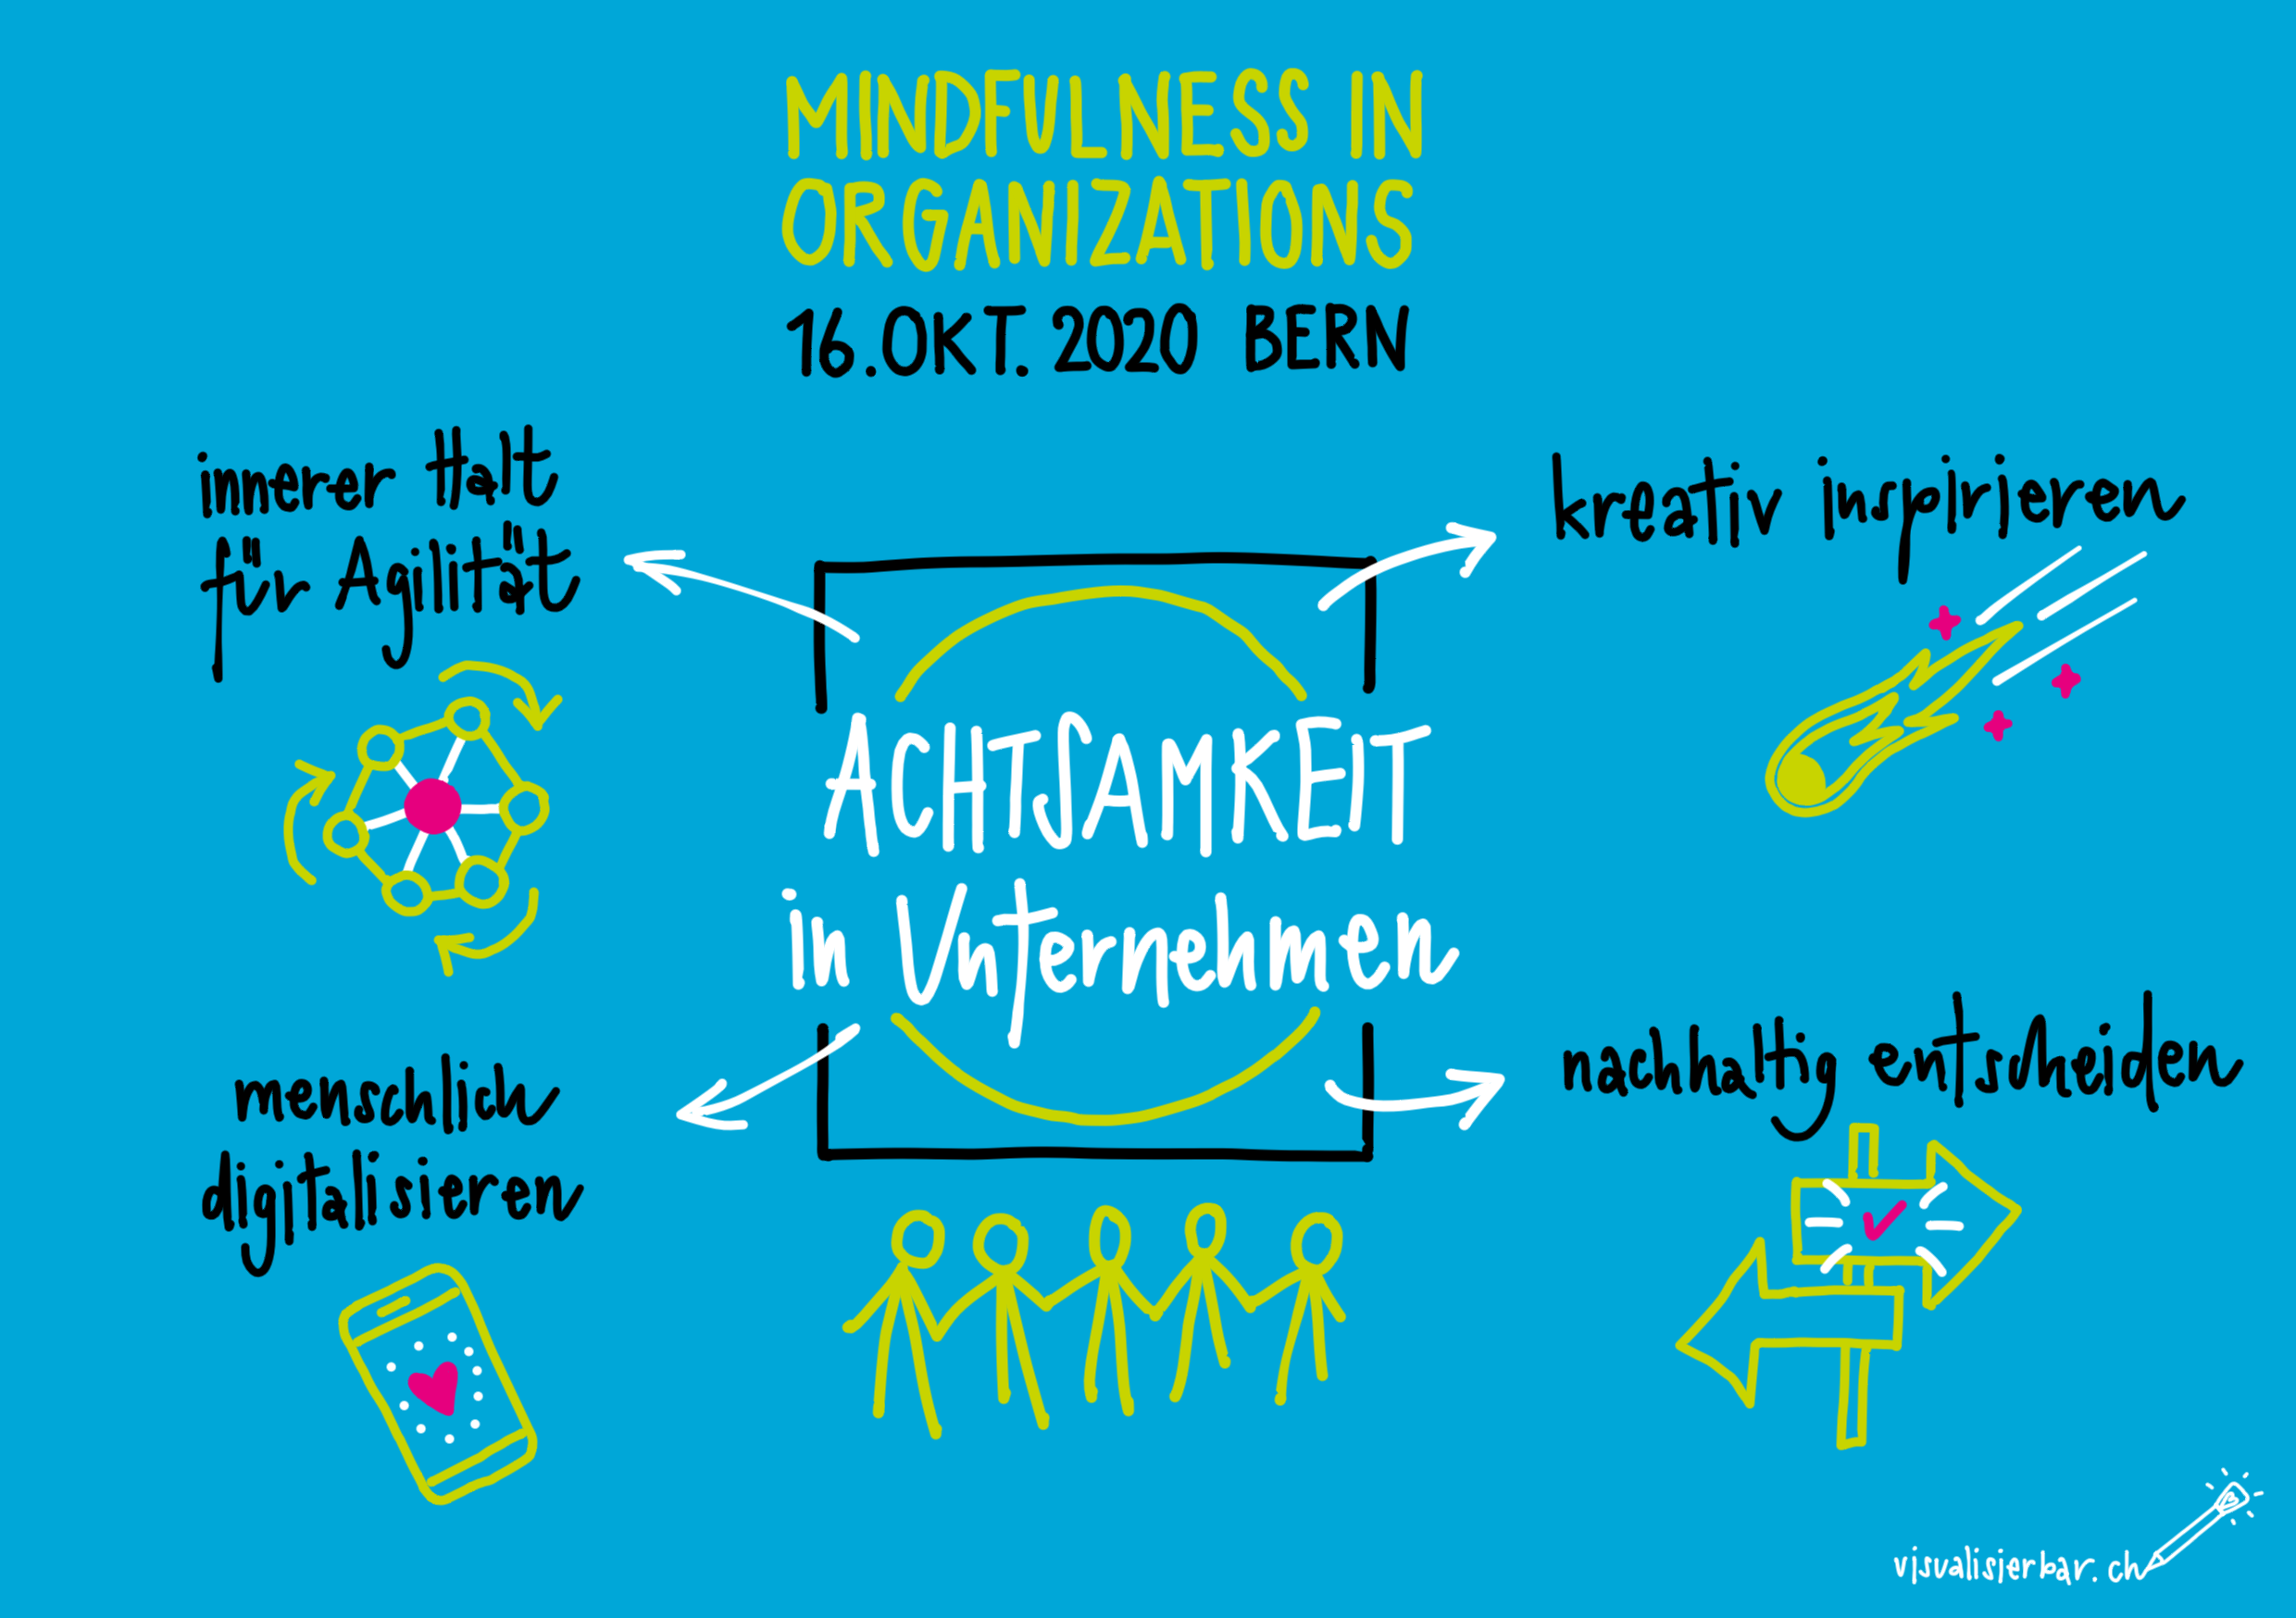 MINDFULNESS IN
ORGANIZATIONS
16. OKT. 2020 BERN
innerer Halt
für Agilität
kreativ inspirieren
ACHTSAMKEIT
in Unternehmen
menschlich
digitalisieren
nachhaltig entscheiden
visualisierbar.ch